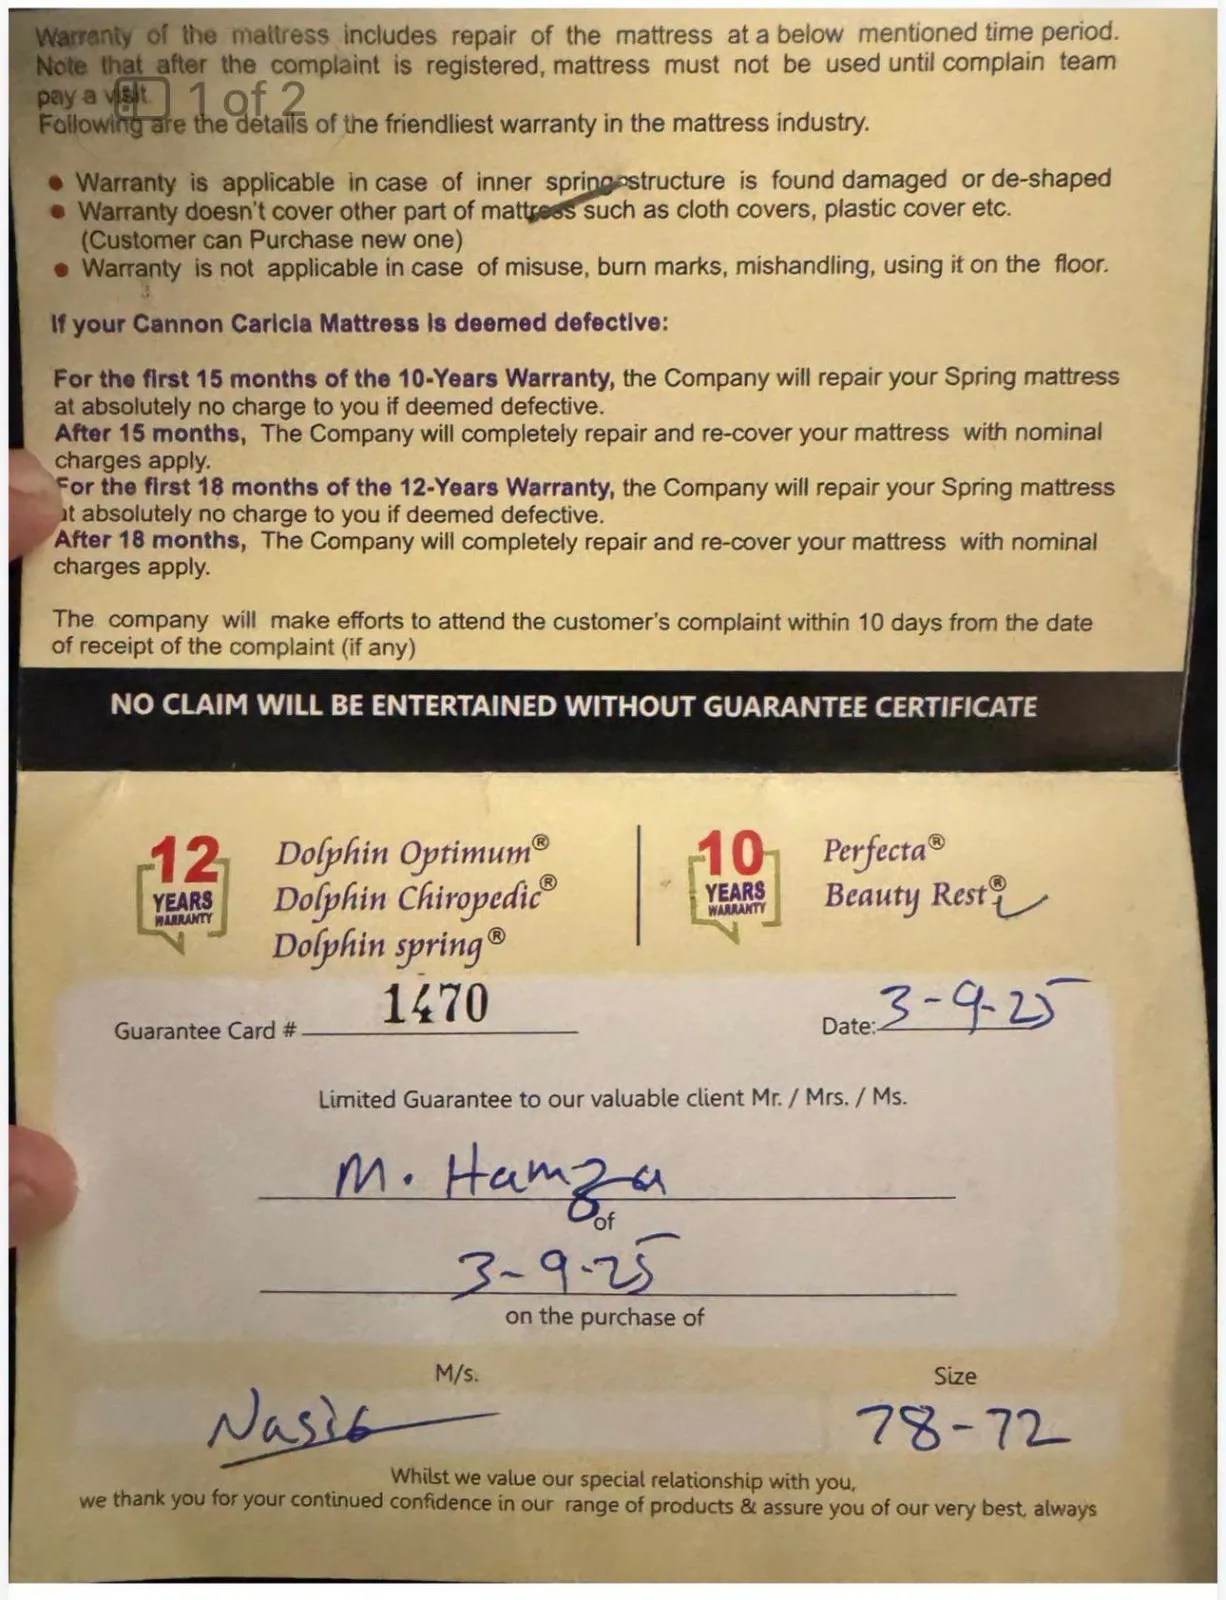 Warranty of the mattress includes repair of the mattress at a below mentioned time period.
Note that after the complaint is registered, mattress must not be used until complain team
pay a visit
1 of 2
Following are the details of the friendliest warranty in the mattress industry.
• Warranty is applicable in case of inner spring structure is found damaged or de-shaped
• Warranty doesn't cover other part of mattress such as cloth covers, plastic cover etc.
(Customer can Purchase new one)
• Warranty is not applicable in case of misuse, burn marks, mishandling, using it on the floor.
If your Cannon Caricia Mattress is deemed defective:
For the first 15 months of the 10-Years Warranty, the Company will repair your Spring mattress
at absolutely no charge to you if deemed defective.
After 15 months, The Company will completely repair and re-cover your mattress with nominal
charges apply.
For the first 18 months of the 12-Years Warranty, the Company will repair your Spring mattress
at absolutely no charge to you if deemed defective.
After 18 months, The Company will completely repair and re-cover your mattress with nominal
charges apply.
The company will make efforts to attend the customer's complaint within 10 days from the date
of receipt of the complaint (if any)
NO CLAIM WILL BE ENTERTAINED WITHOUT GUARANTEE CERTIFICATE
12
YEARS
WARRANTY
Dolphin Optimum®
Dolphin Chiropedic®
Dolphin spring®
10
YEARS
WARRANTY
Perfecta®
Beauty Rest®
Guarantee Card # 1470
Date: 3-9-25
Limited Guarantee to our valuable client Mr. / Mrs. / Ms.
M. Hamza
of
3-9-25
on the purchase of
M/s.
Size
78-72
Whilst we value our special relationship with you,
we thank you for your continued confidence in our range of products & assure you of our very best, always